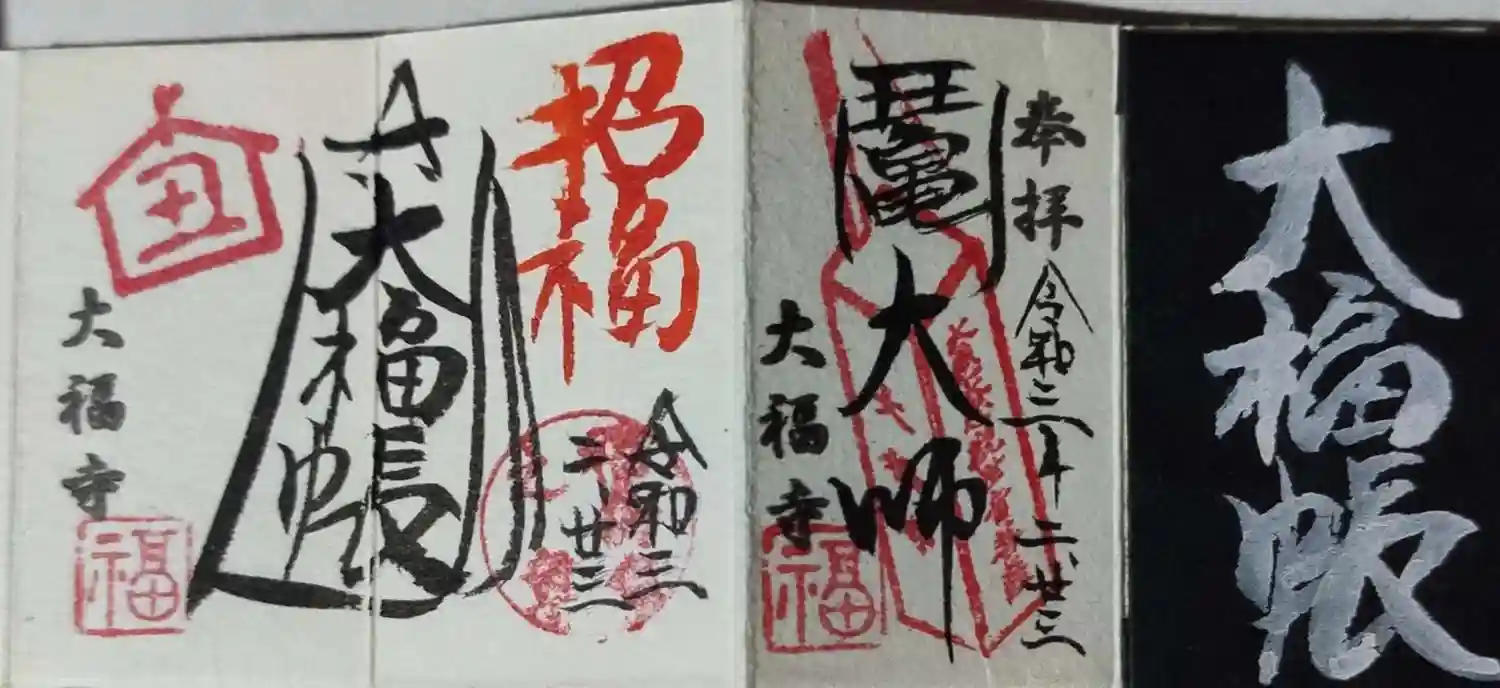 大福帳
奉拝
令和三年二、廿三
大師
大福寺
福
招福
令和三
二、廿三
大福帳
大福寺
福